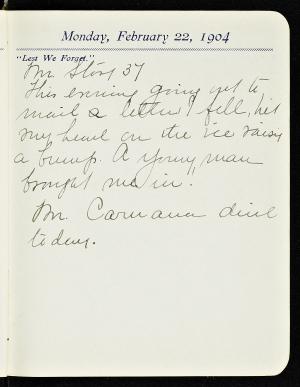 Monday, February 22, 1904
"Lest We Forget."
Mr Story 37
This evening going out to
mail a letter I fell, hit
my head on the ice raising
a bump. A young man
brought me in.
Mr. Carmann died
today.